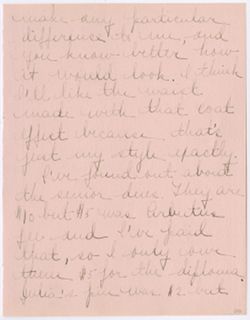 make any particular
difference to me, and
you know better how
it would look. I think
I'll like the waist
made with that coat
effect because that's
just my style exactly.
I've found out about
the senior dues. They are
$10 but $5 was Arbutus
fee and I've paid
that, so I only owe
them $5 for the diploma.
Julia's pin was $2 but